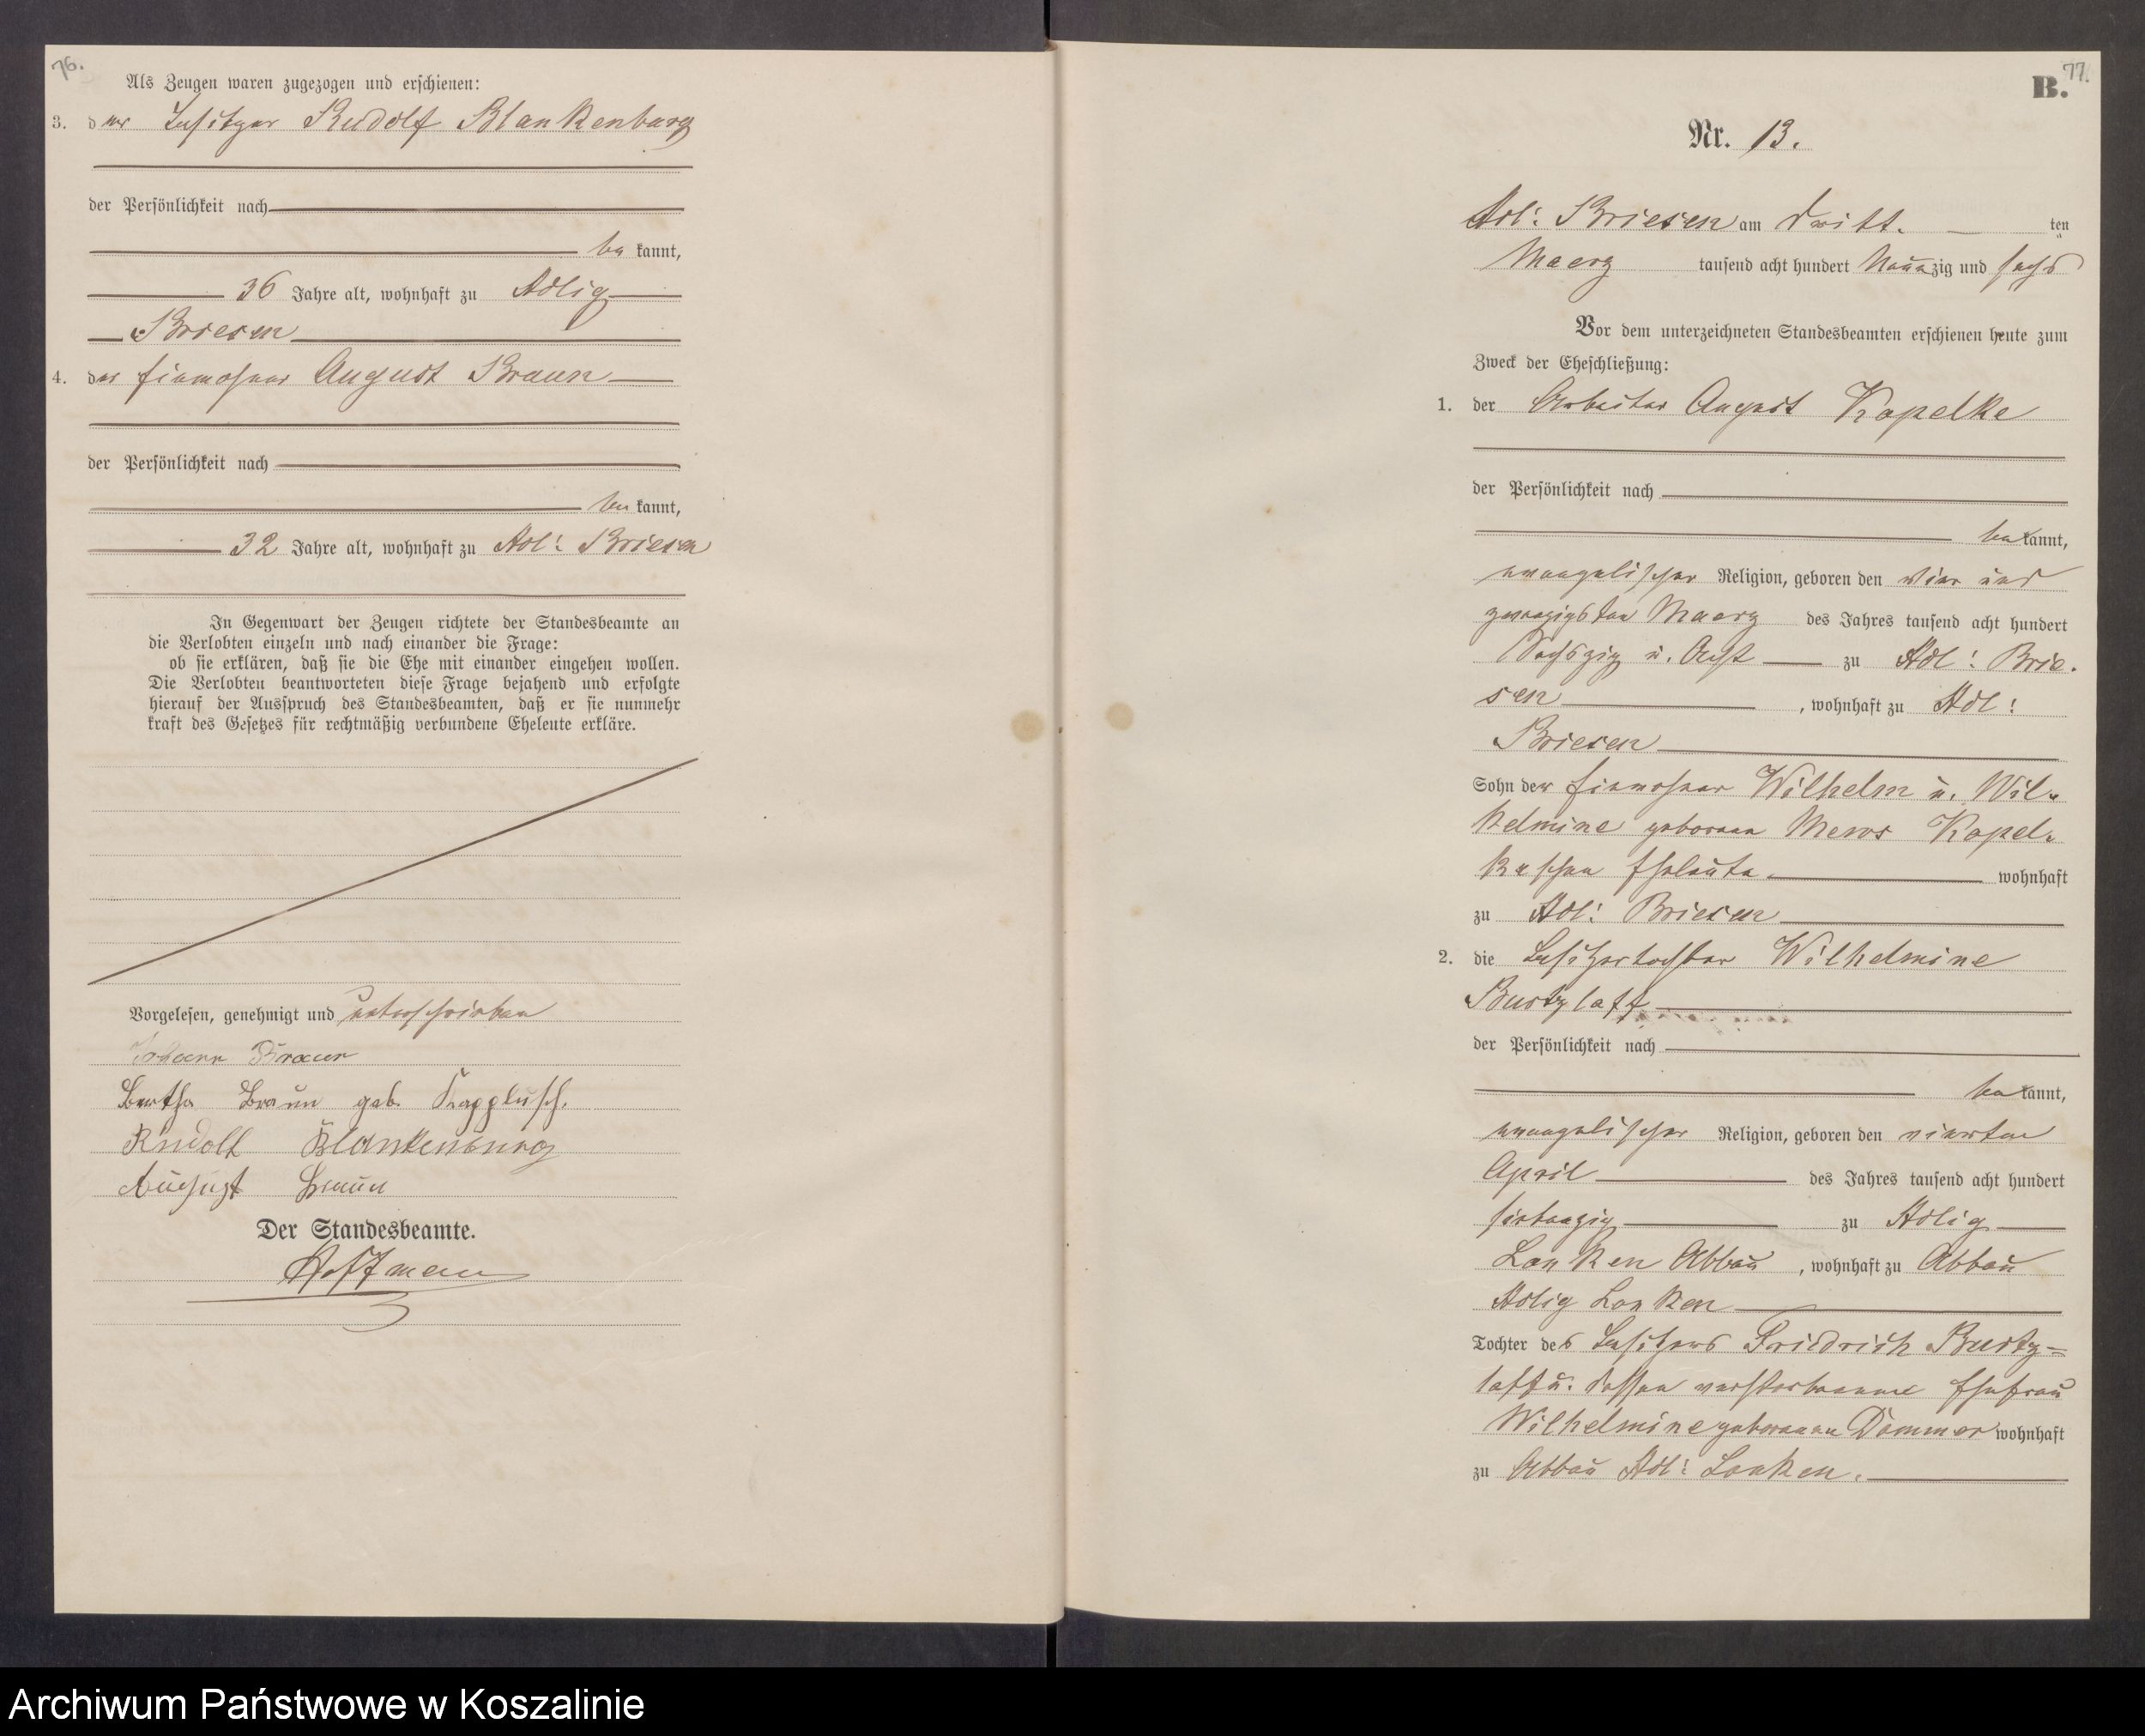 76.
Als Zeugen waren zugezogen und erschienen:
3. der Besitzer Rudolf Blankenburg
der Persönlichkeit nach
be kannt,
36 Jahre alt, wohnhaft zu Adlig
Briesen
4. der Einwohner August Braun
der Persönlichkeit nach
be kannt,
32 Jahre alt, wohnhaft zu Adl: Briesen
In Gegenwart der Zeugen richtete der Standesbeamte an
die Verlobten einzeln und nach einander die Frage:
ob sie erklären, daß sie die Ehe mit einander eingehen wollen.
Die Verlobten beantworteten diese Frage bejahend und erfolgte
hierauf der Ausspruch des Standesbeamten, daß er sie nunmehr
kraft des Gesetzes für rechtmäßig verbundene Eheleute erkläre.
Vorgelesen, genehmigt und unterschrieben
Johann Braun
Bertha Braun geb.
Rudolf Blankenburg
August Braun
Der Standesbeamte.
Hoffmann
77.
B.
Nr. 13.
Adl: Briesen am dritt. ten
Maerz tausend acht hundert Neunzig und sechs
Vor dem unterzeichneten Standesbeamten erschienen heute zum
Zweck der Eheschließung:
1. der Arbeiter August Kapelke
der Persönlichkeit nach
be kannt,
evangelischer Religion, geboren den vier und
zwanzigsten Maerz des Jahres tausend acht hundert
Sechszig u. Acht zu Adl: Brie.
sen , wohnhaft zu Adl:
Briesen
Sohn der Einwohner Wilhelm u. Wil.
helmine geborene Mews Kapel.
keschen Eheleute. wohnhaft
zu Adl: Briesen
2. die Besitzertochter Wilhelmine
Bustzlaff
der Persönlichkeit nach
be kannt,
evangelischer Religion, geboren den vierten
April des Jahres tausend acht hundert
siebenzig zu Adlig
Lanken Abbau , wohnhaft zu Abbau
Adlig Lanken
Tochter des Besitzers Friedrich Bustz=
laff u. dessen verstorbenen Ehefrau
Wilhelmine geborenen Dommer wohnhaft
zu Abbau Adl: Lanken.
Archiwum Państwowe w Koszalinie